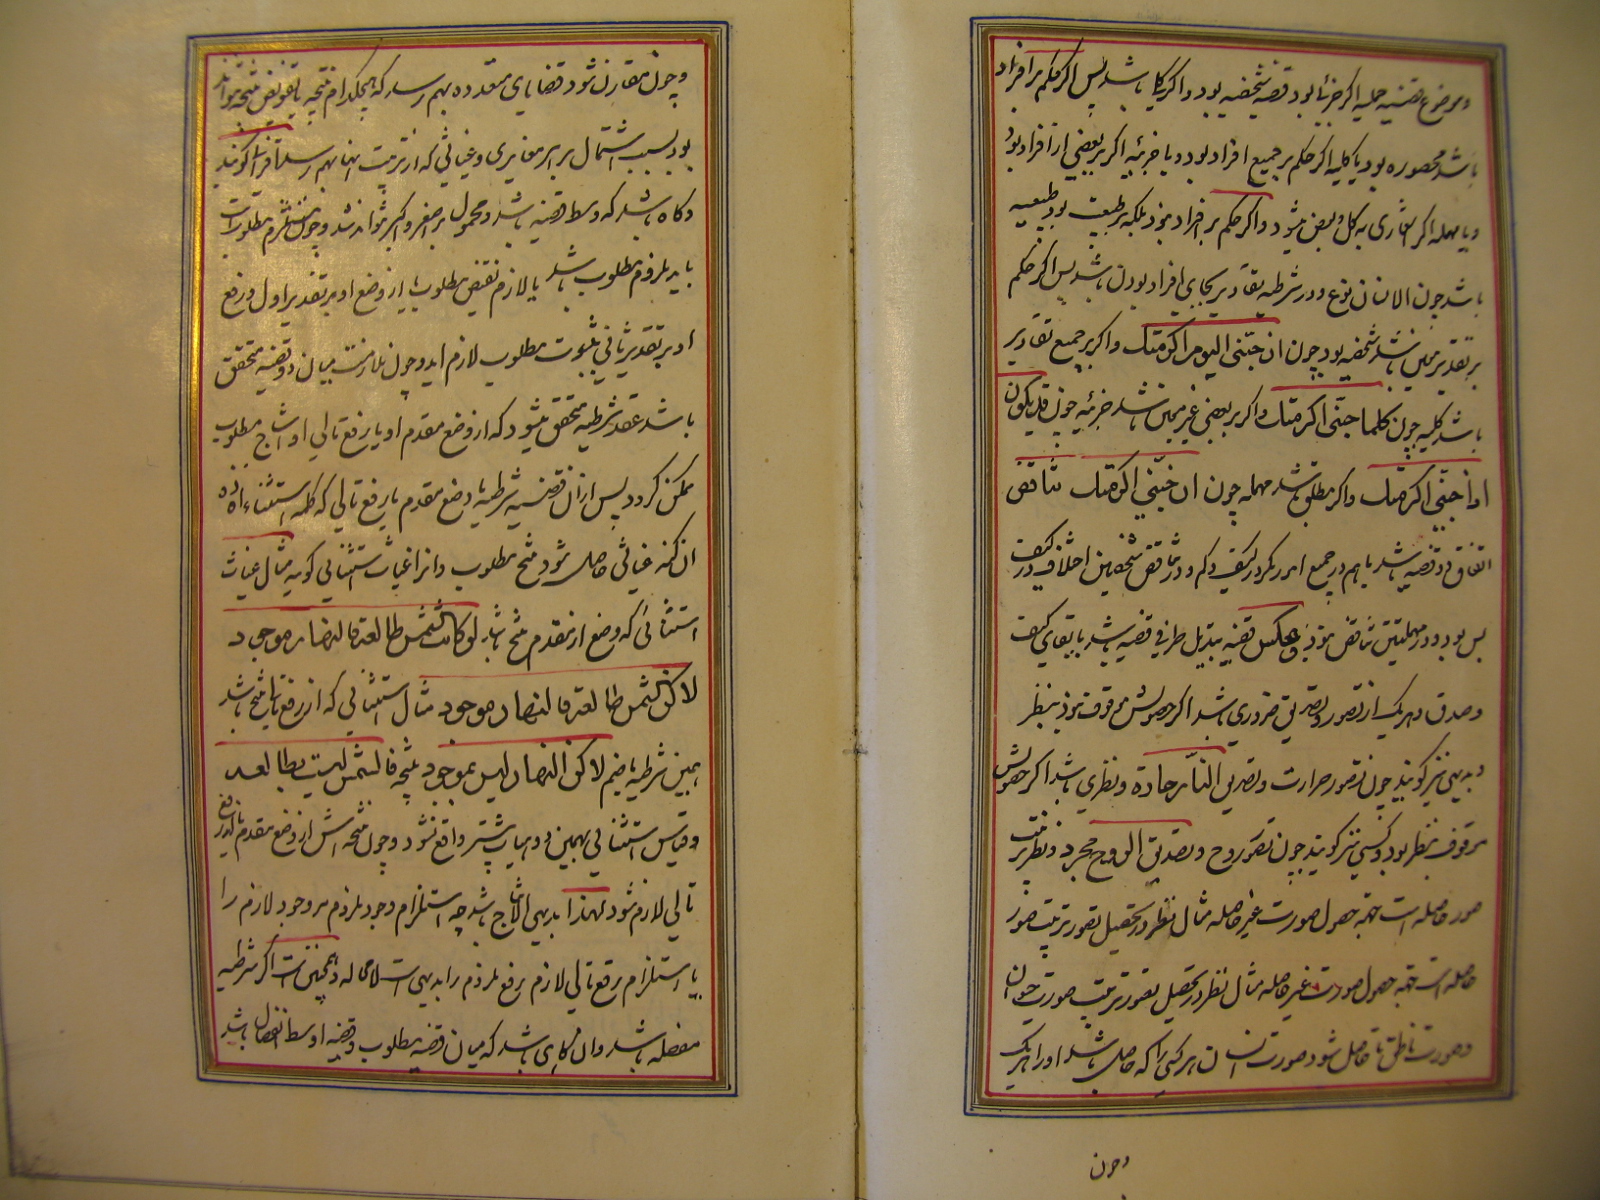 و موضوع قضیه حملیه اگر جزئی بود قضیه شخصیه بود و اگر کلی باشد پس اگر حکم بر افراد
باشد محصوره بود یا کلیه اگر حکم بر جمیع افراد بود و یا جزئیه اگر بر بعضی از افراد بود
و یا مهمله اگر اشاری به کل و بعض نشود و اگر حکم بر افراد نبود بلکه بر طبیعت بود طبیعیه
باشد چون الانسان نوع و در شرطیه تقادیر بجای افراد بودن باشد پس اگر حکم
بر تقدیر معین باشد شخصیه بود چون ان جئتنی الیوم اکرمتک و اگر بر جمیع تقادیر
باشد کلیه چون کلما جئتنی اکرمتک و اگر بر بعضی غیر معین باشد جزئیه چون قد یکون
اذا جئتنی اکرمتک و اگر مطلق باشد مهمله چون ان جئتنی اکرمتک تناقض
اتفاق دو قضیه باشد با هم در جمیع امور مگر در کیف و کم و در تناقض شخصیتین اختلاف در کیف
بس بود و در مهملتین تناقض نبود و عکس قضیه تبدیل طرفی قضیه باشد با بقای کیف
و صدق و هر یک از تصور و تصدیق ضروری باشد اگر حصولش موقوف نبود بنظر
و بدیهی نیز گویند چون تصور حرارت و تصدیق النار حارة و نظری باشد اگر حصولش
موقوف بنظر بود و کسبی نیز گویند چون تصور روح و تصدیق الروح مجرد و نظر ترتیب
صور حاصله است جهة حصول صورت غیر حاصله مثال نظر در تحصیل تصور ترتیب صور
حاصله است جهة حصول صورت غیر حاصله مثال نظر در تحصیل تصور ترتیب صورت حیوان
و صورت ناطق تا حاصل شود صورت انسان هر کسی را که حاصل باشد او را هر یک
و چون
و چون مقارن شود قضایای متعدده بهم رسد که هیچکدام نتیجه یا نقیض نتیجه نتواند
بود بسبب اشتمال بر امر مغایری و غیاثی که از ترتیب اینها بهم رسد اقترانی گویند
و گاه باشد که وسط قضیه باشد و محمول بر اصغر و اکبر نتواند شد و چون مستلزم مطلوبست
باید ملزوم مطلوب باشد یا لازم نقیض مطلوب تا از وضع او بر تقدیر اول و رفع
او بر تقدیر ثانی ثبوت مطلوب لازم آید و چون ملازمت میان دو قضیه متحقق
باشد عقد شرطیه متحقق میشود که از وضع مقدم او یا رفع تالی او انتاج مطلوب
ممکن گردد پس از آن قضیه شرطیه با وضع مقدم یا رفع تالی که کلمه استثناء افاده
آن کند غیاثی حاصل شود منتج مطلوب و انرا غیاث استثنائی گویند مثال غیاث
استثنائی که وضع از مقدم منتج باشد لو کانت الشمس طالعة فالنهار موجود
لاکن الشمس طالعة فالنهار موجود مثال استثنائی که از رفع تالی منتج باشد
همین شرطیه با ضم لاکن النهار لیس بموجود نتیجه فالشمس لیست بطالعه
و قیاس استثنائی بهمین دو هیات پیشتر واقع نشود و چون نتیجه اش از وضع مقدم یا از رفع
تالی لازم شود لهذا بدیهی الانتاج باشد چه استلزام وجود ملزوم مر وجود لازم را
یا استلزام رفع تالی لازم رفع ملزوم را بدیهی است لا محاله و همچنین است اگر شرطیه
منفصله باشد و ان گاهی باشد که میان قضیه مطلوب و قضیه اوسط انفصال باشد